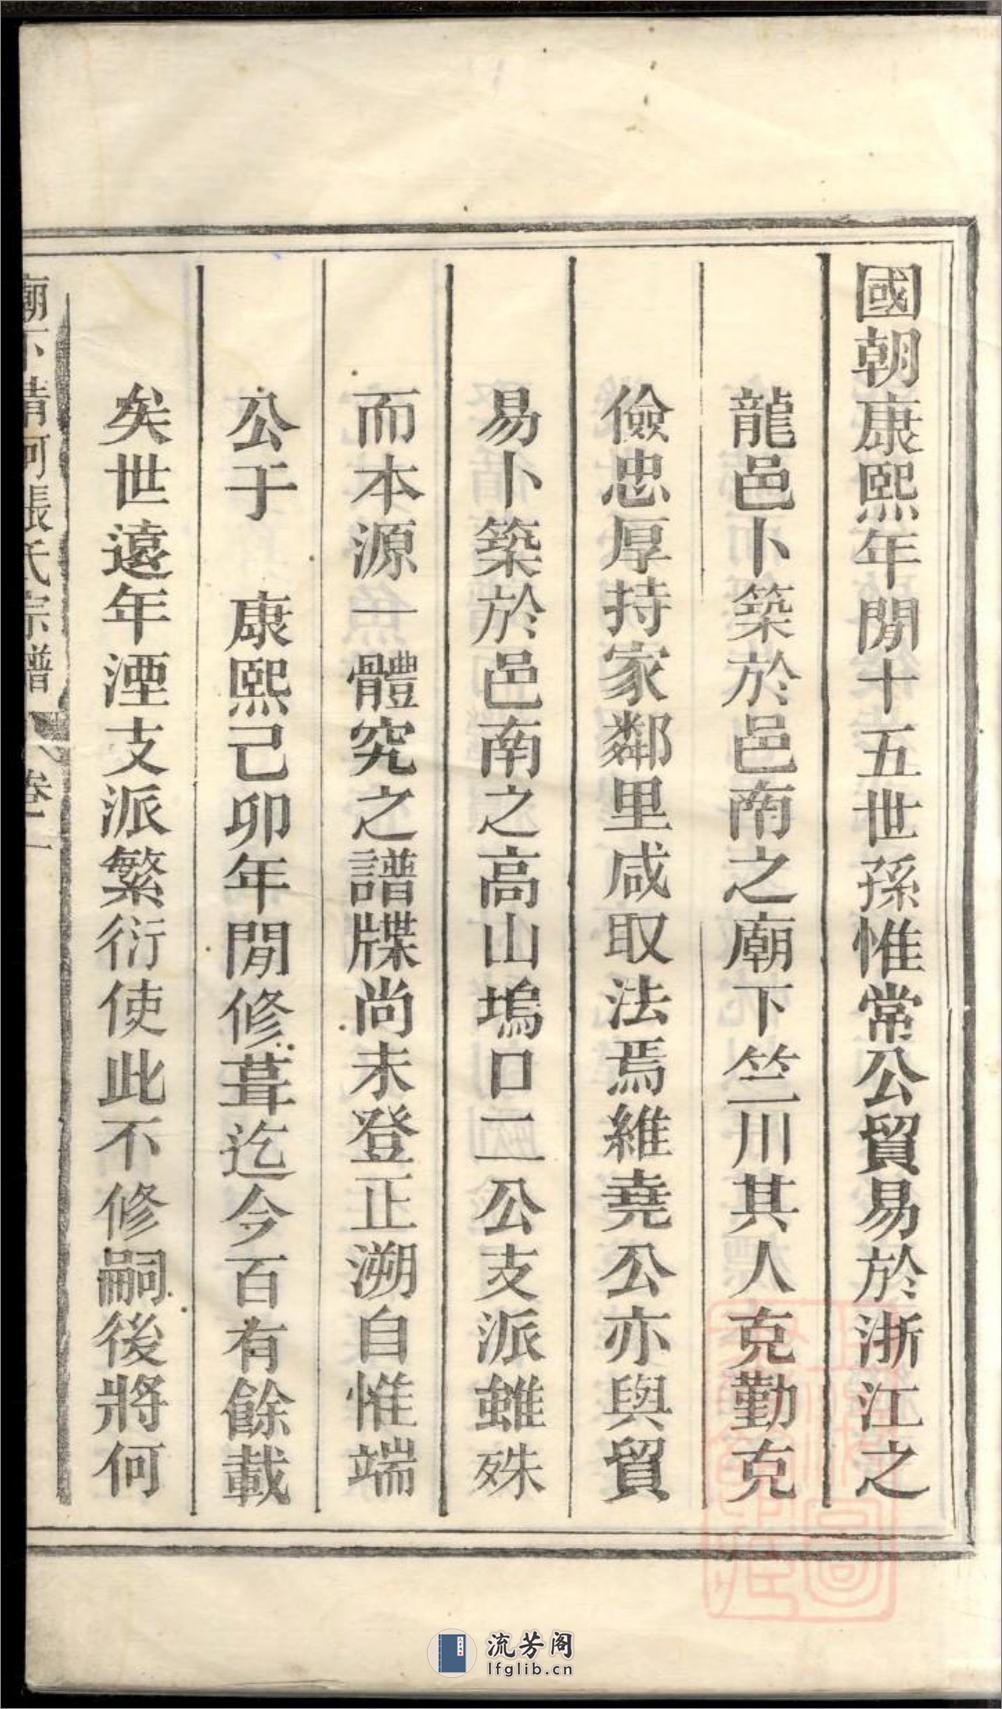 國朝康熙年閒十五世孫惟常公貿易於浙江之
龍邑卜築於邑南之廟下竺川其人克勤克
儉忠厚持家鄰里咸取法焉維堯公亦與貿
易卜築於邑南之高山塢口二公支派雖殊
而本源一體究之譜牒尚未登正溯自惟端
公于　康熙己卯年閒修葺迄今百有餘載
矣世遠年湮支派繁衍使此不修嗣後將何
廟下清河張氏宗譜 卷一
流芳阁
lfglib.cn